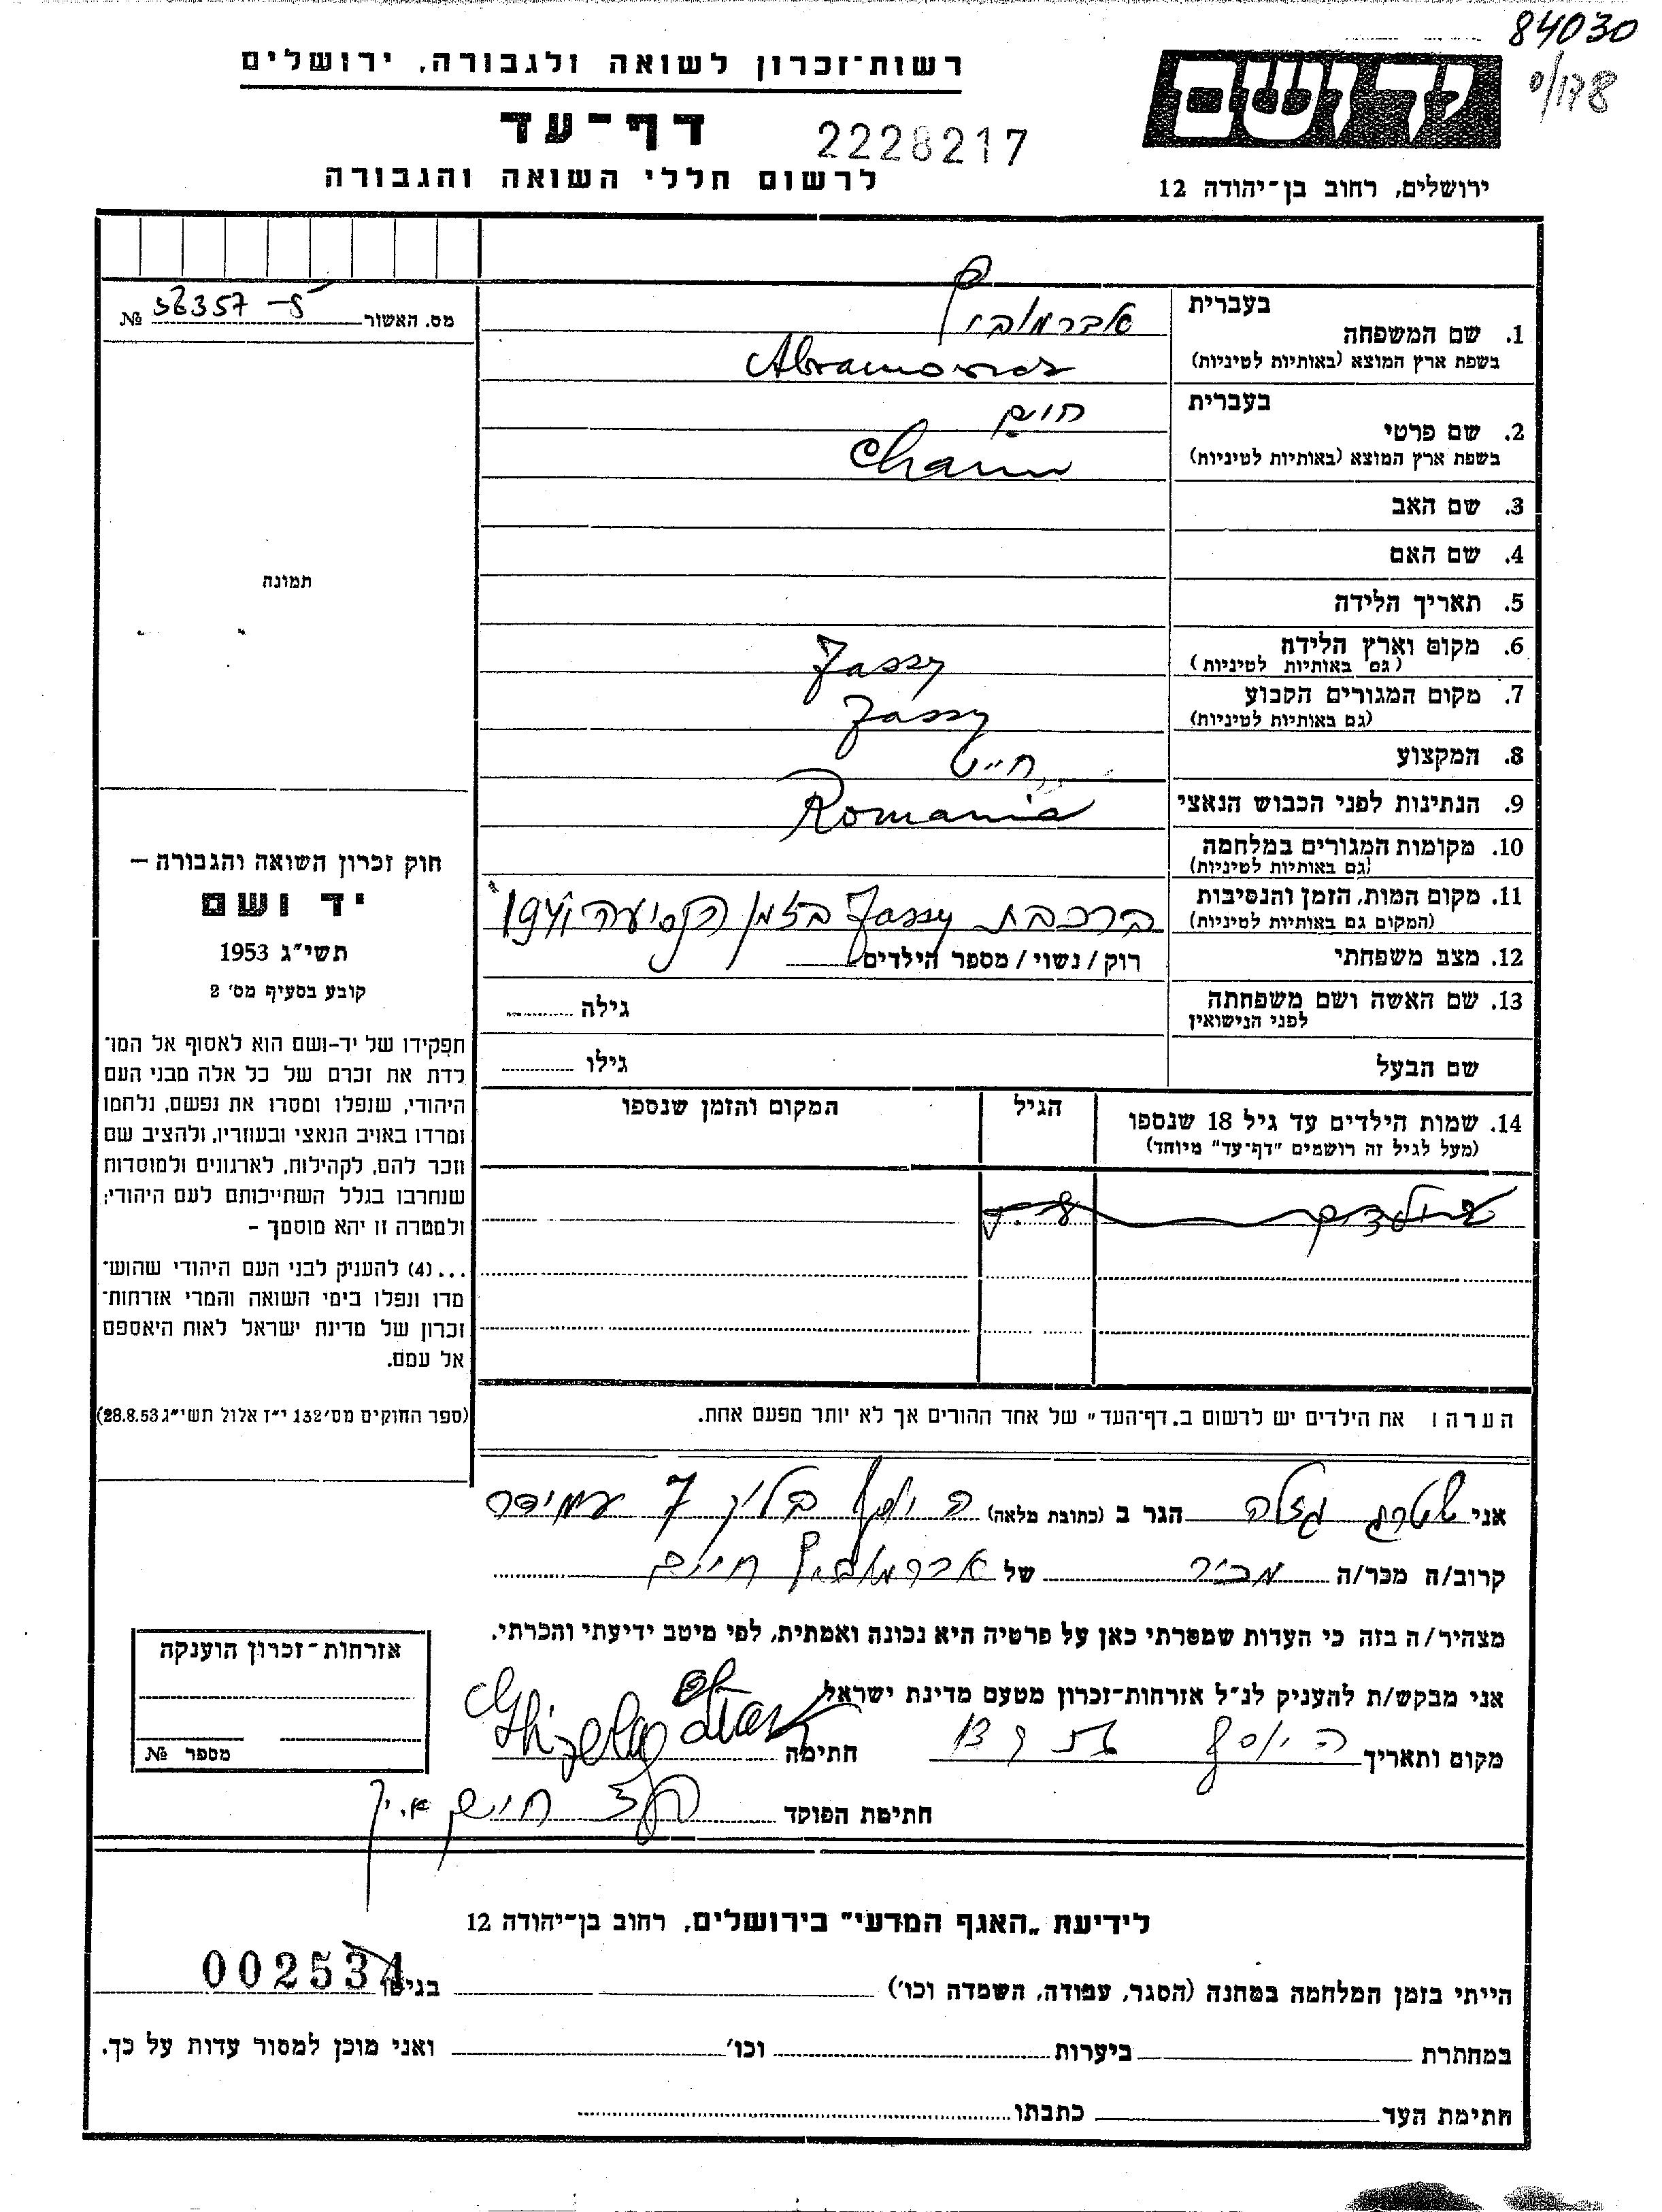 84030
רשות־זכרון לשואה ולגבורה, ירושלים
יד ושם
דף־עד
2228217
לרשום חללי השואה והגבורה
ירושלים, רחוב בן־יהודה 12
מס. האשור № 38357
בעברית
1. שם המשפחה
אברמוביץ
בשפת ארץ המוצא (באותיות לטיניות)
Abramovici
בעברית
חיים
2. שם פרטי
בשפת ארץ המוצא (באותיות לטיניות)
Chaim
3. שם האב
4. שם האם
תמונה
5. תאריך הלידה
6. מקום וארץ הלידה
(גם באותיות לטיניות)
Jassy
7. מקום המגורים הקבוע
(גם באותיות לטיניות)
Jassy
8. המקצוע
חייט
9. הנתינות לפני הכבוש הנאצי
Romania
10. מקומות המגורים במלחמה
(גם באותיות לטיניות)
11. מקום המות, הזמן והנסיבות
(המקום גם באותיות לטיניות)
ברכבת Jassy בזמן הנסיעה 1941
12. מצב משפחתי
רוק/נשוי/מספר הילדים
13. שם האשה ושם משפחתה
לפני הנישואין
גילה
שם הבעל
גילו
14. שמות הילדים עד גיל 18 שנספו
(מעל לגיל זה רושמים "דף־עד" מיוחד)
הגיל
המקום והזמן שנספו
חוק זכרון השואה והגבורה –
יד ושם
תשי"ג 1953
קובע בסעיף מס' 2
תפקידו של יד-ושם הוא לאסוף אל המו־
לדת את זכרם של כל אלה מבני העם
היהודי, שנפלו ומסרו את נפשם, נלחמו
ומרדו באויב הנאצי ובעוזריו, ולהציב שם
וזכר להם, לקהילות, לארגונים ולמוסדות
שנחרבו בגלל השתייכותם לעם היהודי;
ולמטרה זו יהא מוסמך –
...(4) להעניק לבני העם היהודי שהוש־
מדו ונפלו בימי השואה והמרי אזרחות־
זכרון של מדינת ישראל לאות היאספם
אל עמם.
(ספר החוקים מס' 132 י"ז אלול תשי"ג 28.8.53)
הערה: את הילדים יש לרשום ב„דף־העד" של אחד ההורים אך לא יותר מפעם אחת.
אני גזלה הגר ב (כתובת מלאה) 7 עמידר
קרוב/ה מכר/ה מכיר של אברמוביץ חיים
מצהיר/ה בזה כי העדות שמסרתי כאן על פרטיה היא נכונה ואמתית, לפי מיטב ידיעתי והכרתי.
אני מבקש/ת להעניק לנ"ל אזרחות־זכרון מטעם מדינת ישראל
אזרחות־זכרון הוענקה
מספר №
מקום ותאריך
חתימה Ghizela
חתימת הפוקד
לידיעת „האגף המדעי" בירושלים, רחוב בן־יהודה 12
002534
הייתי בזמן המלחמה במחנה (הסגר, עבודה, השמדה וכו') בגיטו
במחתרת ביערות וכו' ואני מוכן למסור עדות על כך.
חתימת העד כתבתו